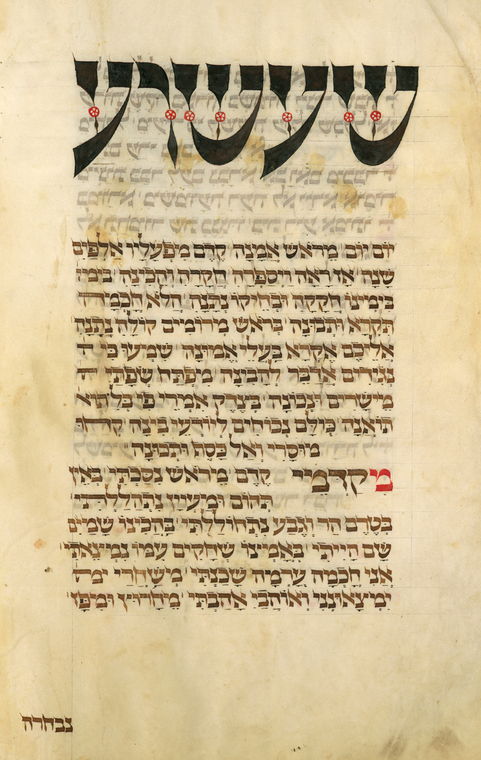 שעשוע
יום יום מראש אמנה קדם מפעליו אלפים
שנה אז ראה ויספרה חקרה והכינה בימי
בימינו חקקה ובחיקו נתנה הלא חכמה
תקרא ותבונה בראש מרומים קולה נתנה
אליכם אקרא בעלי אמונה שמעו כי
נגידים אדבר להבינה מפתח שפתי
מישרים ונבונה בצדק אמרי פי
תואנה כולם נכוחים ליודעי בינה קחו
מוסרי ואל כסף ותבונה
מקדמי קדם מראש נסכתי באין
תהום ומעיין נתהללתי
בטרם הר וגבע נתחוללתי בהכינו שמים
שם הייתי באמצו שחקים עמו נמצאתי
אני חכמה ערמה שכנתי משחרי ימ
ימצאונני ואוהבי אהבתי מחרוץ ומפז
נבחרה